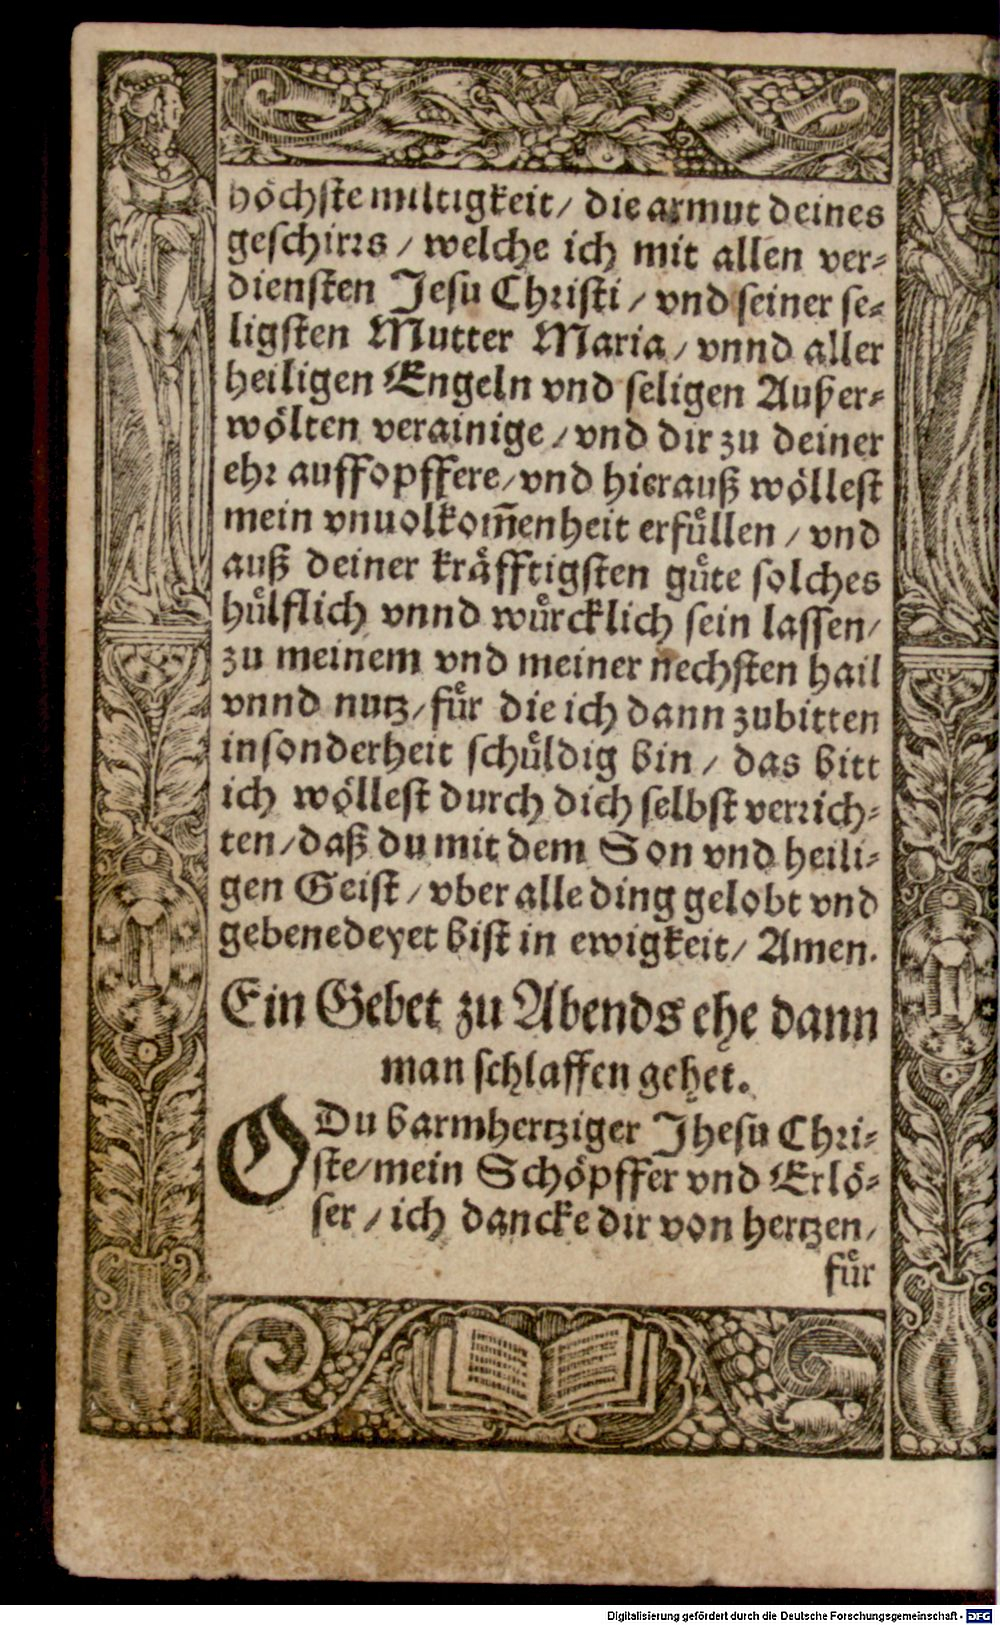 höchste miltigkeit/ die armut deines
geschirrs / welche ich mit allen ver-
diensten Jesu Christi / vnd seiner se-
ligsten Mutter Maria / vnnd aller
heiligen Engeln vnd seligen Außer-
wölten verainige / vnd dir zu deiner
ehr auffopffere / vnd hierauß wöllest
mein vnuolkom̃enheit erfüllen / vnd
auß deiner kräfftigsten güte solches
hülflich vnnd würcklich sein lassen /
zu meinem vnd meiner nechsten hail
vnnd nutz / für die ich dann zubitten
insonderheit schüldig bin / das bitt
ich wöllest durch dich selbst verrich-
ten / daß du mit dem Son vnd heili-
gen Geist / vber alle ding gelobt vnd
gebenedeyet bist in ewigkeit / Amen.
Ein Gebet zu Abends ehe dann
man schlaffen gehet.
O Du barmhertziger Jhesu Chri-
ste / mein Schöpffer vnd Erlö-
ser / ich dancke dir von hertzen /
für
Digitalisierung gefördert durch die Deutsche Forschungsgemeinschaft - DFG